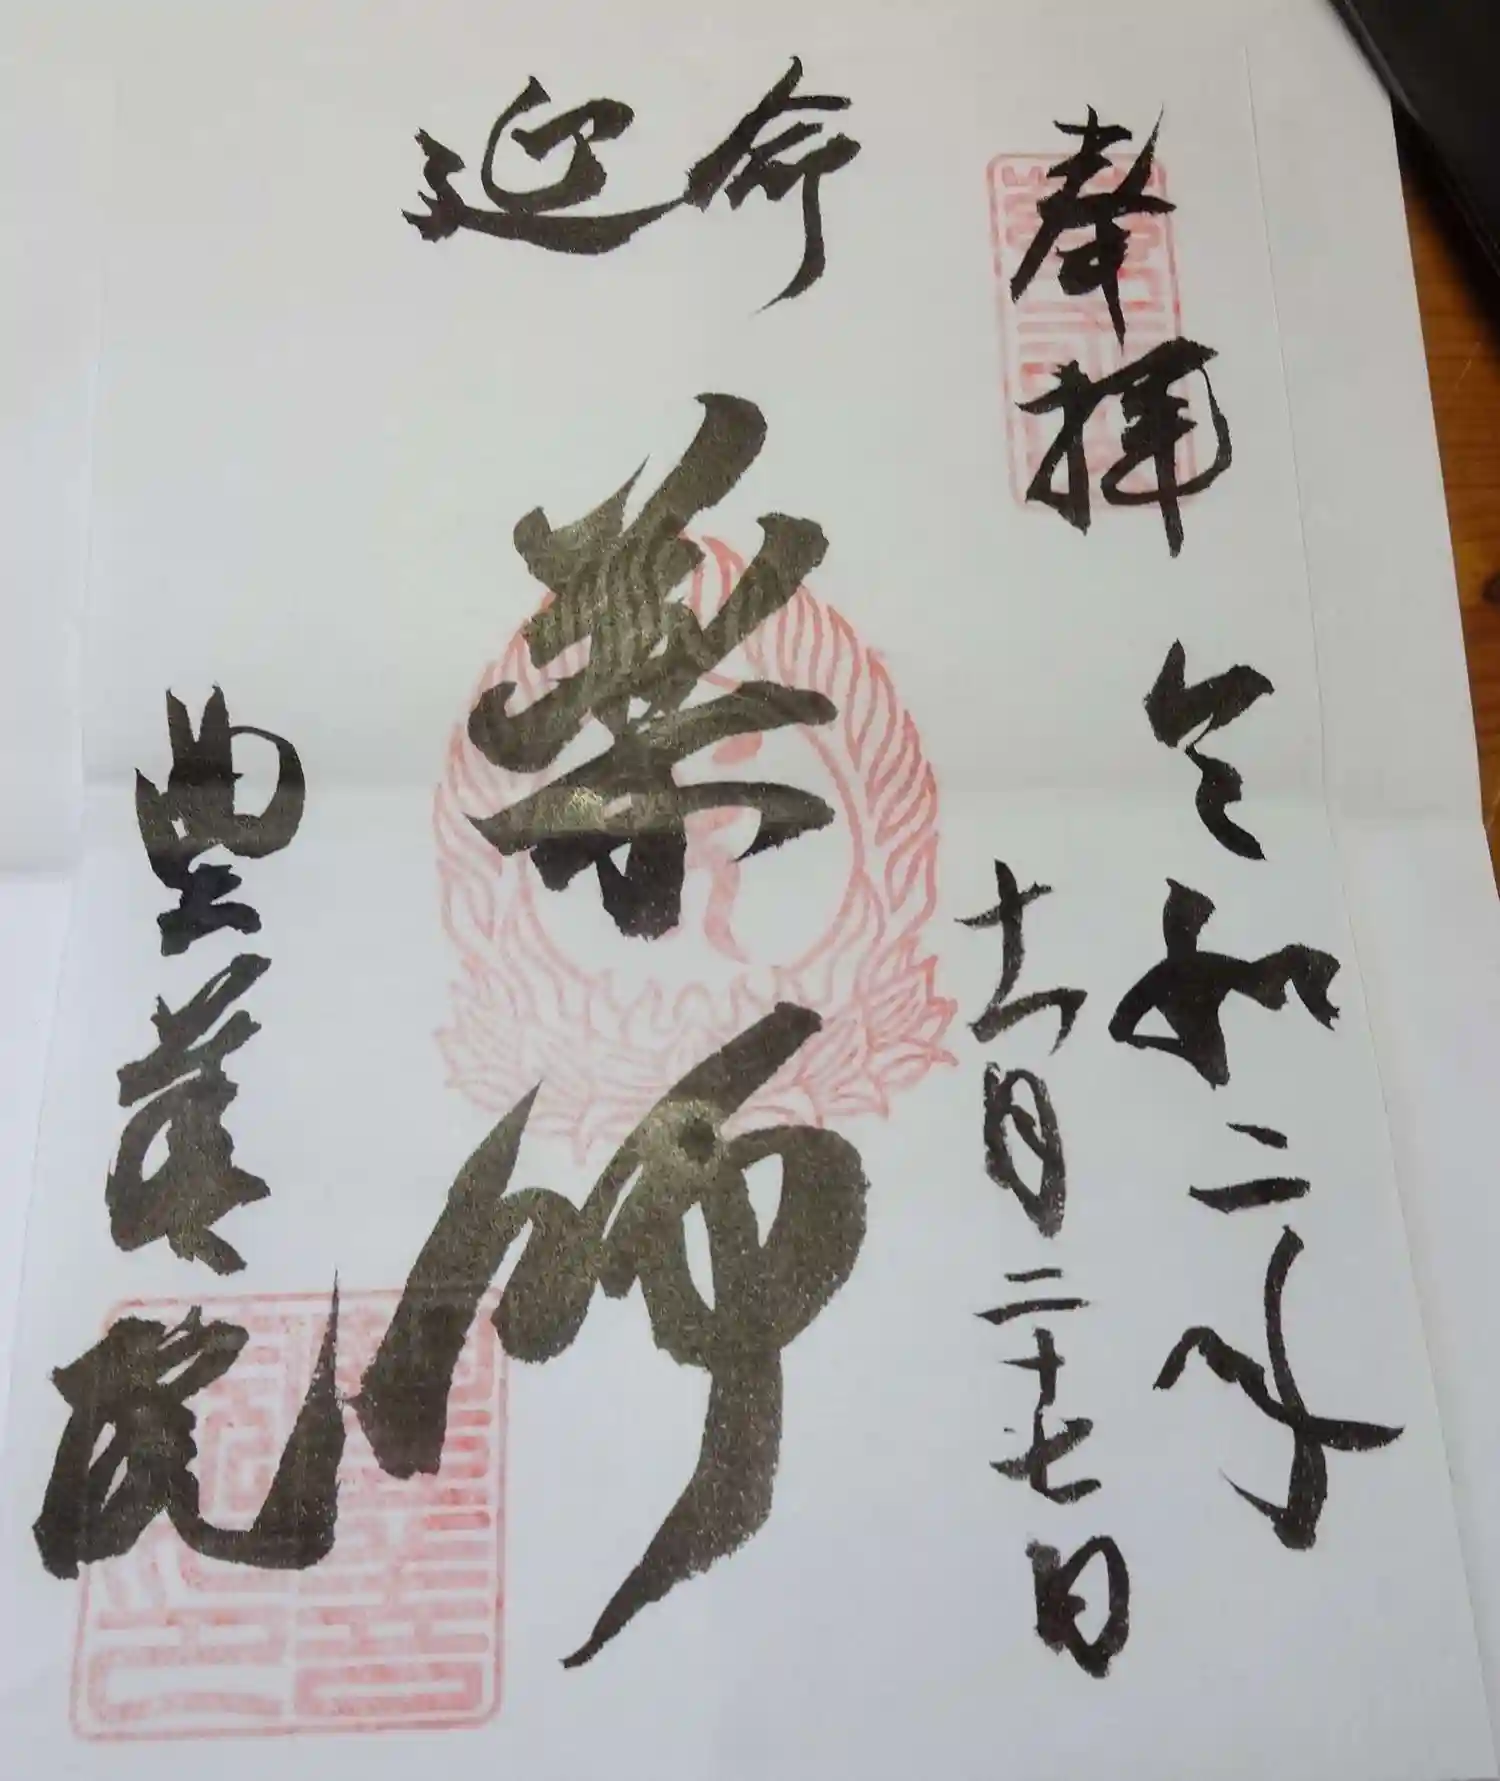 奉拝
令和二年
十一月二十七日
延命
薬師
豊 院